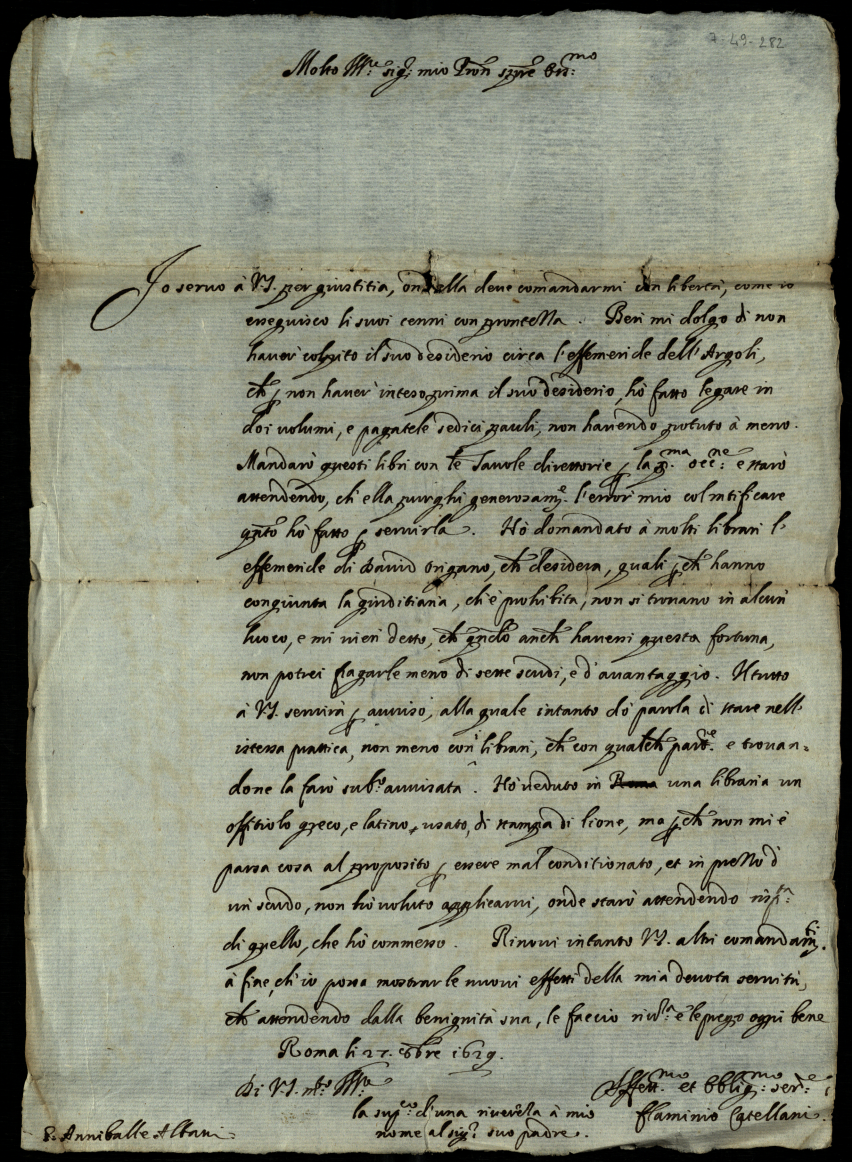 7-49-282
Molto Ill.re sig.r mio Pron sing.re oss.mo
Io servo à V.S. per giustitia, ond'ella deve comandarmi con libertà, come io
esseguisco li suoi cenni con prontezza. Ben mi dolgo di non
haver colpito il suo desiderio circa l'effemeride dell'Argoli,
ch p non haver inteso prima il suo desiderio, hò fatto legare in
doi volumi, e pagatele sedici pauli, non havendo potuto à meno.
Mandarò questi libri con le Tavole direttorie p la p.ma occ.ne e starò
attendendo, ch'ella purghi generosam.e l'error mio col ratificare
q.nto hò fatto p servirla. Hò domandato à molti librari l'
effemeride di David Origano, ch desidera, quali p ch hanno
congiunta la giuditiaria, ch'è prohibita, non si trovano in alcun
luoco, e mi vien detto, ch q.ndo anch havessi questa fortuna,
non potrei pagarle meno di sette scudi, e d'avantaggio. Il tutto
à V.S. servirà p avviso, alla quale intanto dò parola di stare nell'
istessa prattica, non meno con librari, ch con qualch par.re e trovan=
done la farò sub.o avvisata. Hò veduto in Roma una libraria un
offitiolo greco, e latino, usato, di stampa di lione, ma p ch non mi è
parsa cosa al proposito p essere mal conditionato, et in prezzo d'
un scudo, non hò voluto applicarvi, onde starò attendendo risp.ta
di quello, che hò commesso. Rinovi intanto V.S. altri comandam.ti
à fine, ch'io possa mostrarle nuovi effetti della mia devota servitù,
ch attendendo dalla benignità sua, le faccio riv.za e le prego ogni bene
Roma li 27. 8bre 1629.
Di V.S. m.to Ill.re
Aff.mo et obblig.mo ser.re
la sup.co d'una riverenza à mio
Flaminio Catellani
nome al sig.r suo padre.
S. Anniballe Altani